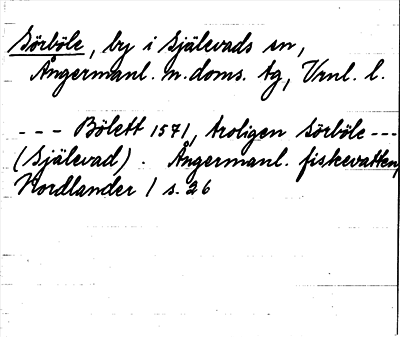 Sörböle, by i Själevads sn,
Ångermanl. n. doms. tg, Vrnl. l.
--- Bölett 1571, troligen Sörböle ---
(Själevad). Ångermanl. fiskevatten,
Nordlander 1 s. 26